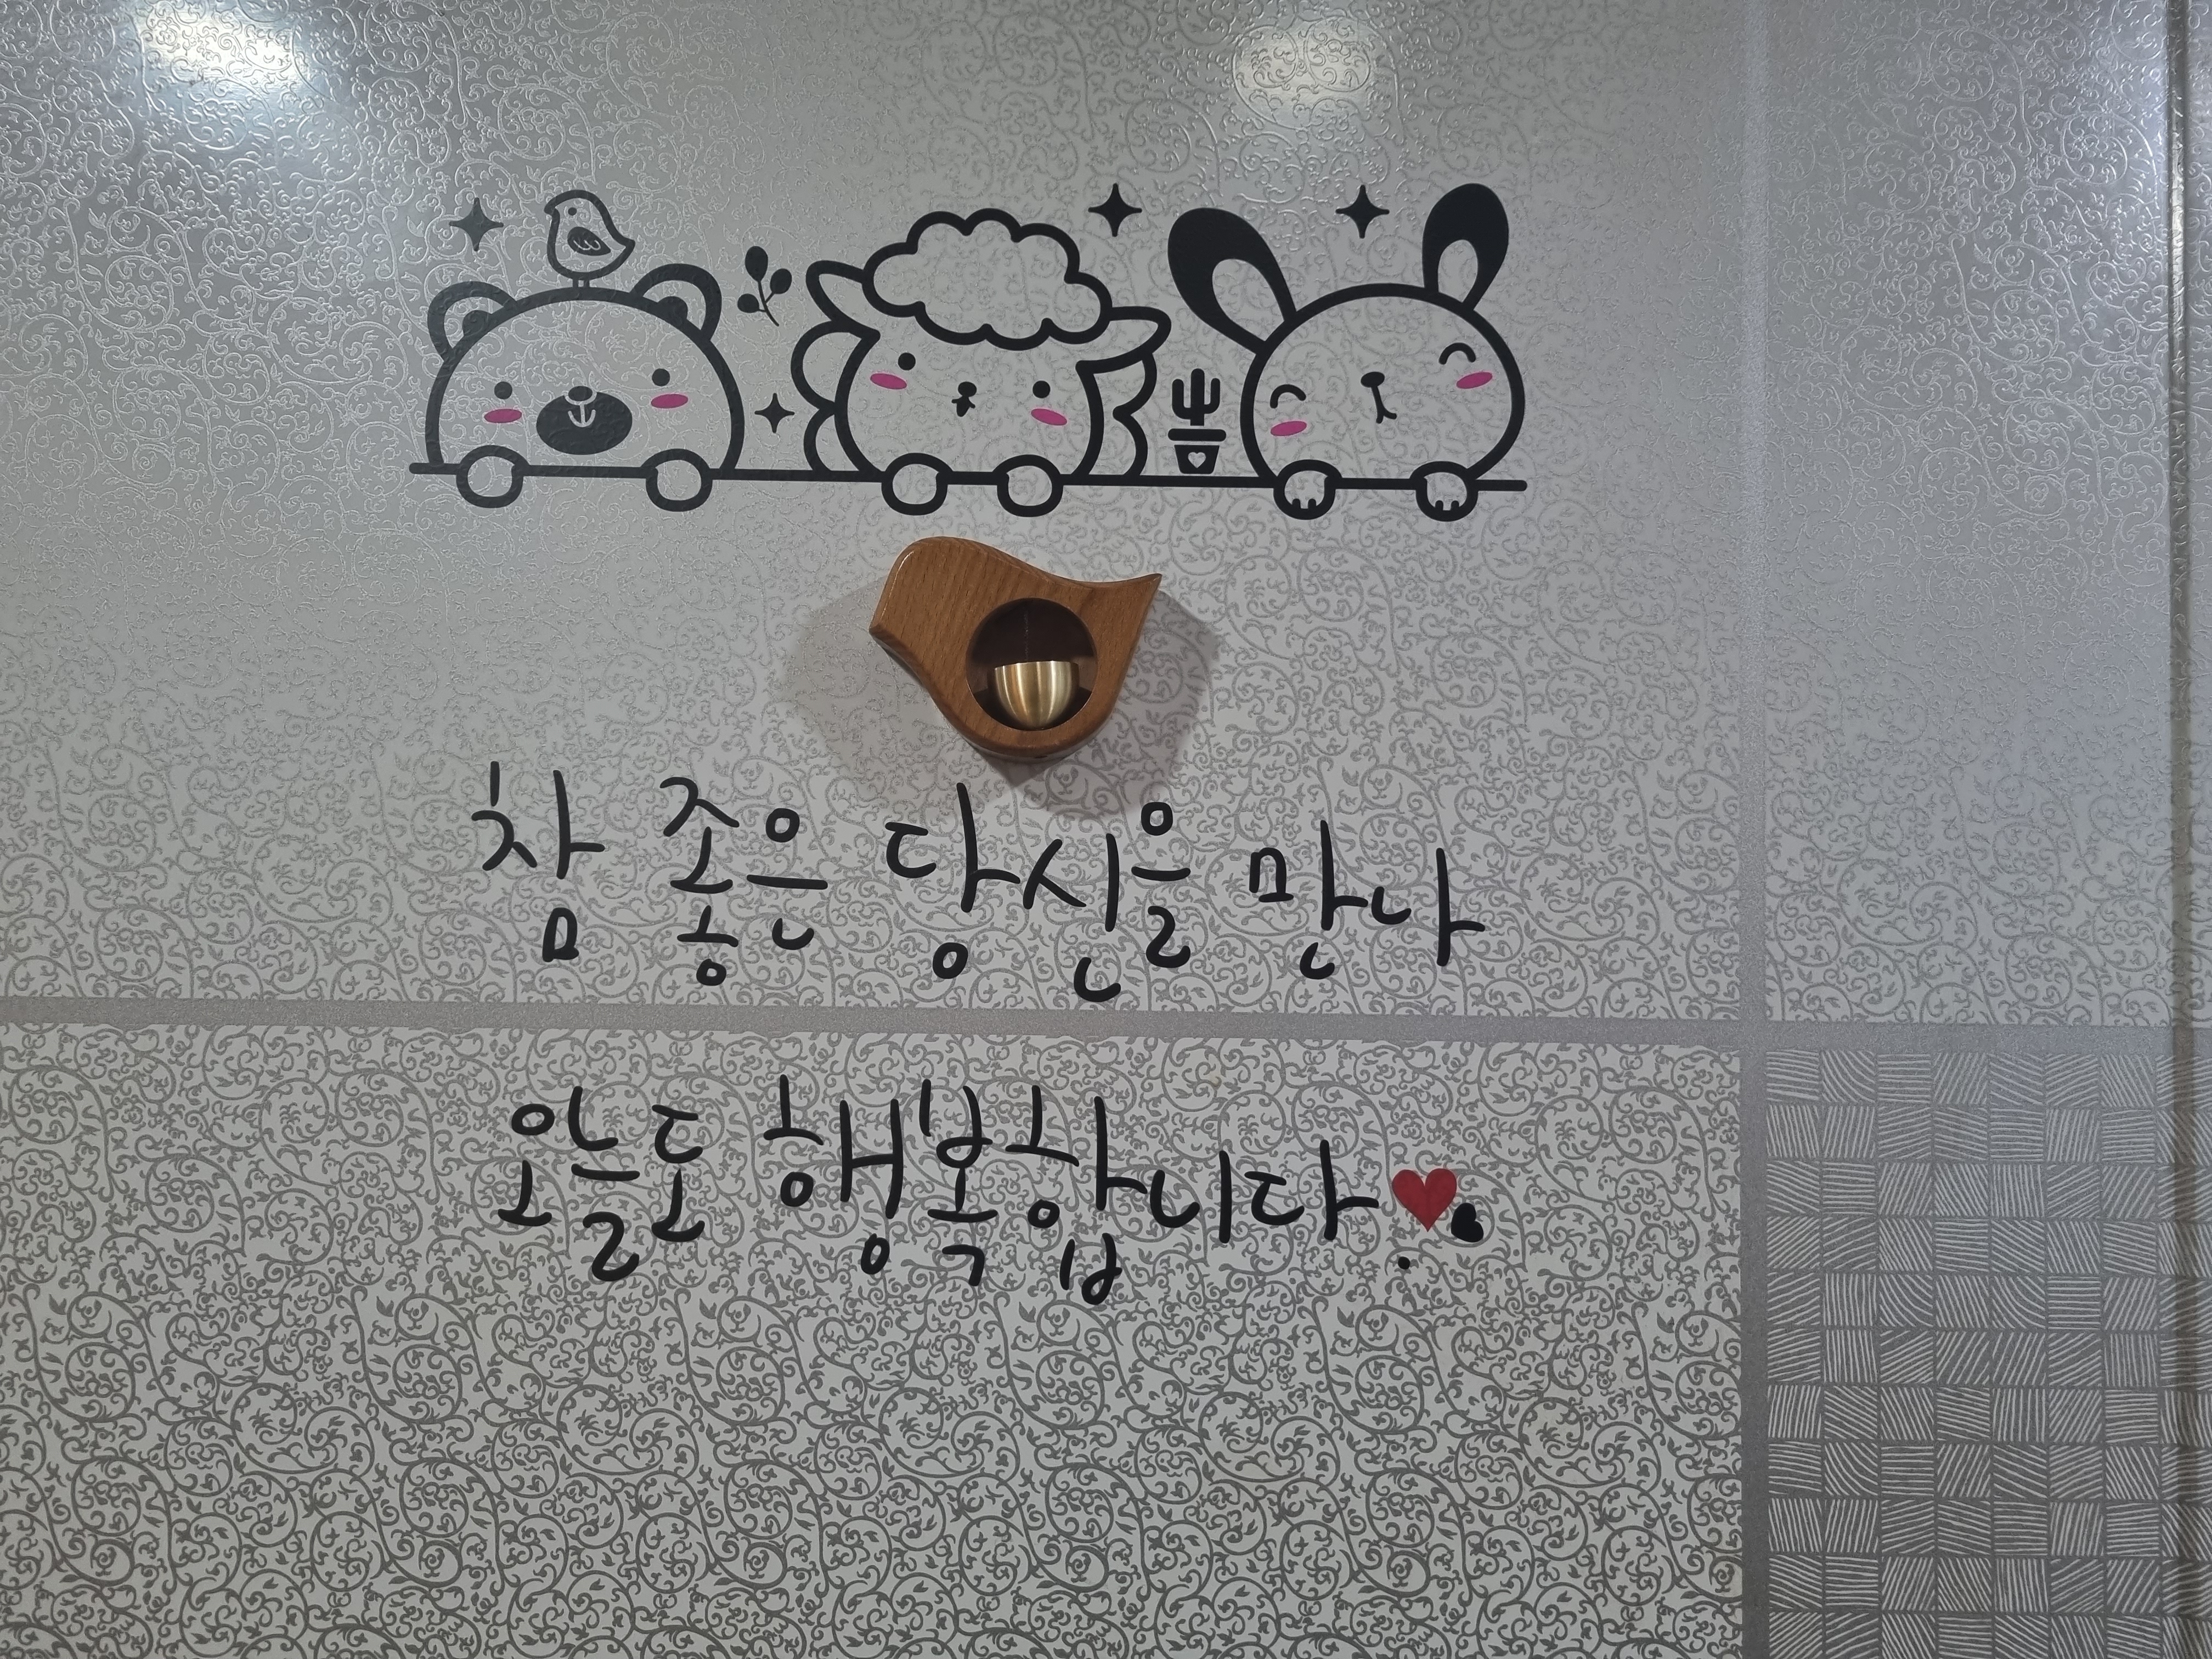 참 좋은 당신을 만나
오늘도 행복합니다♥